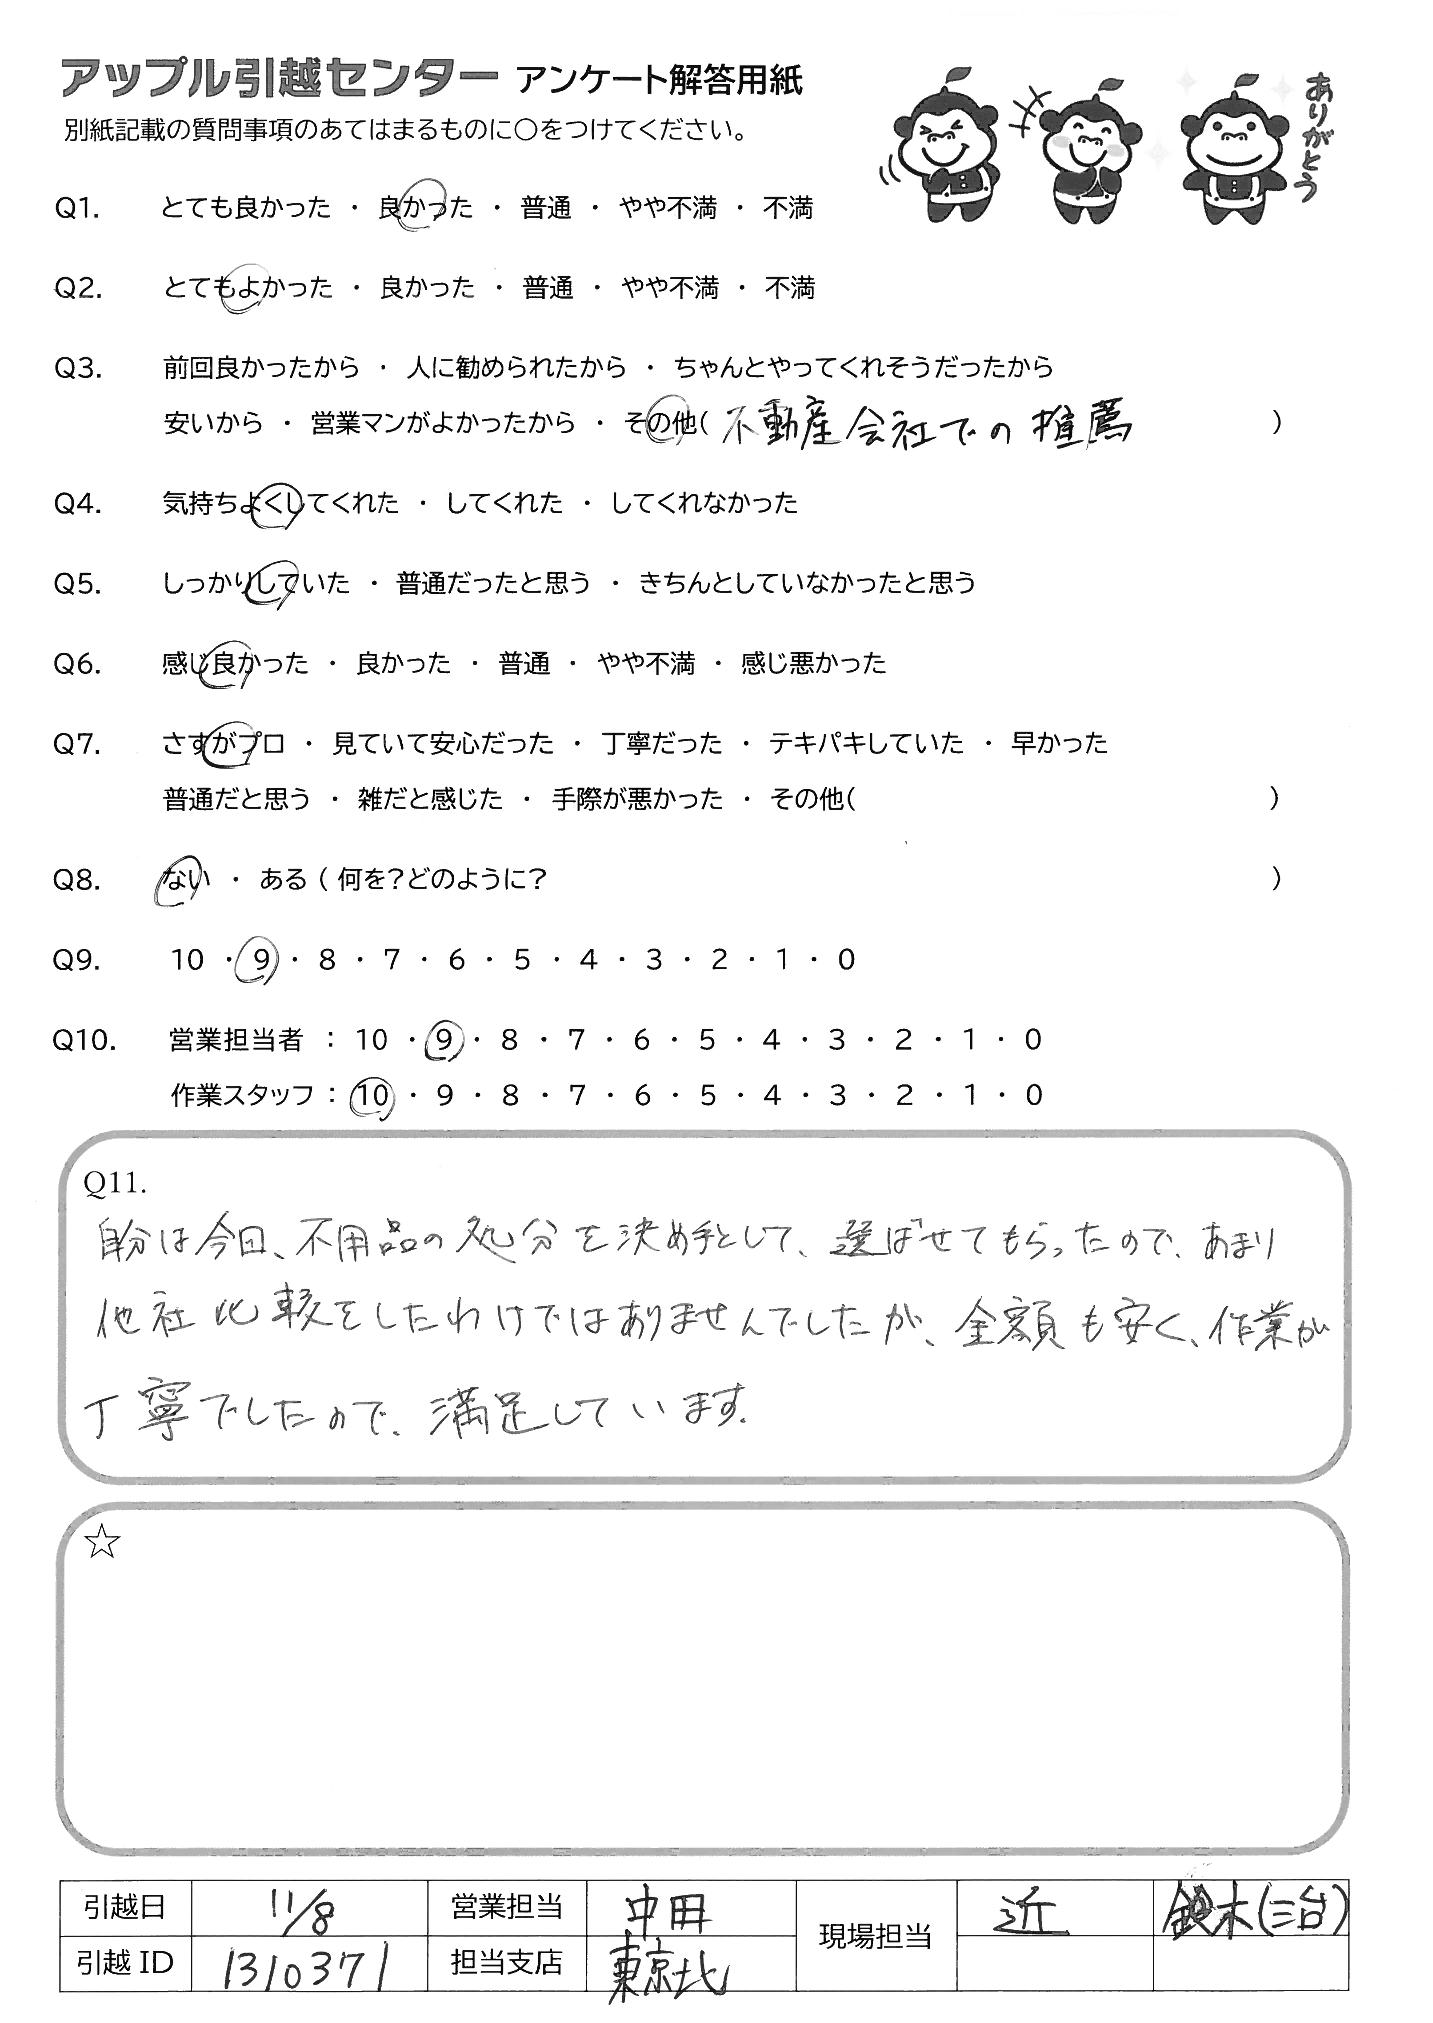 アップル引越センター アンケート解答用紙
ありがとう
別紙記載の質問事項のあてはまるものに○をつけてください。
Q1. とても良かった ・ 良かった ・ 普通 ・ やや不満 ・ 不満
Q2. とてもよかった ・ 良かった ・ 普通 ・ やや不満 ・ 不満
Q3. 前回良かったから ・ 人に勧められたから ・ ちゃんとやってくれそうだったから
安いから ・ 営業マンがよかったから ・ その他( 不動産会社での推薦 )
Q4. 気持ちよくしてくれた ・ してくれた ・ してくれなかった
Q5. しっかりしていた ・ 普通だったと思う ・ きちんとしていなかったと思う
Q6. 感じ良かった ・ 良かった ・ 普通 ・ やや不満 ・ 感じ悪かった
Q7. さすがプロ ・ 見ていて安心だった ・ 丁寧だった ・ テキパキしていた ・ 早かった
普通だと思う ・ 雑だと感じた ・ 手際が悪かった ・ その他( )
Q8. ない ・ ある ( 何を?どのように? )
Q9. 10 ・ 9 ・ 8 ・ 7 ・ 6 ・ 5 ・ 4 ・ 3 ・ 2 ・ 1 ・ 0
Q10. 営業担当者 : 10 ・ 9 ・ 8 ・ 7 ・ 6 ・ 5 ・ 4 ・ 3 ・ 2 ・ 1 ・ 0
作業スタッフ : 10 ・ 9 ・ 8 ・ 7 ・ 6 ・ 5 ・ 4 ・ 3 ・ 2 ・ 1 ・ 0
Q11.
自分は今回、不用品の処分を決め手として、選ばせてもらったので、あまり
他社比較をしたわけではありませんでしたが、金額も安く、作業が
丁寧でしたので、満足しています。
☆
引越日 11/8 営業担当 中田 現場担当 近 鈴木(三台)
引越ID 1310371 担当支店 東京北